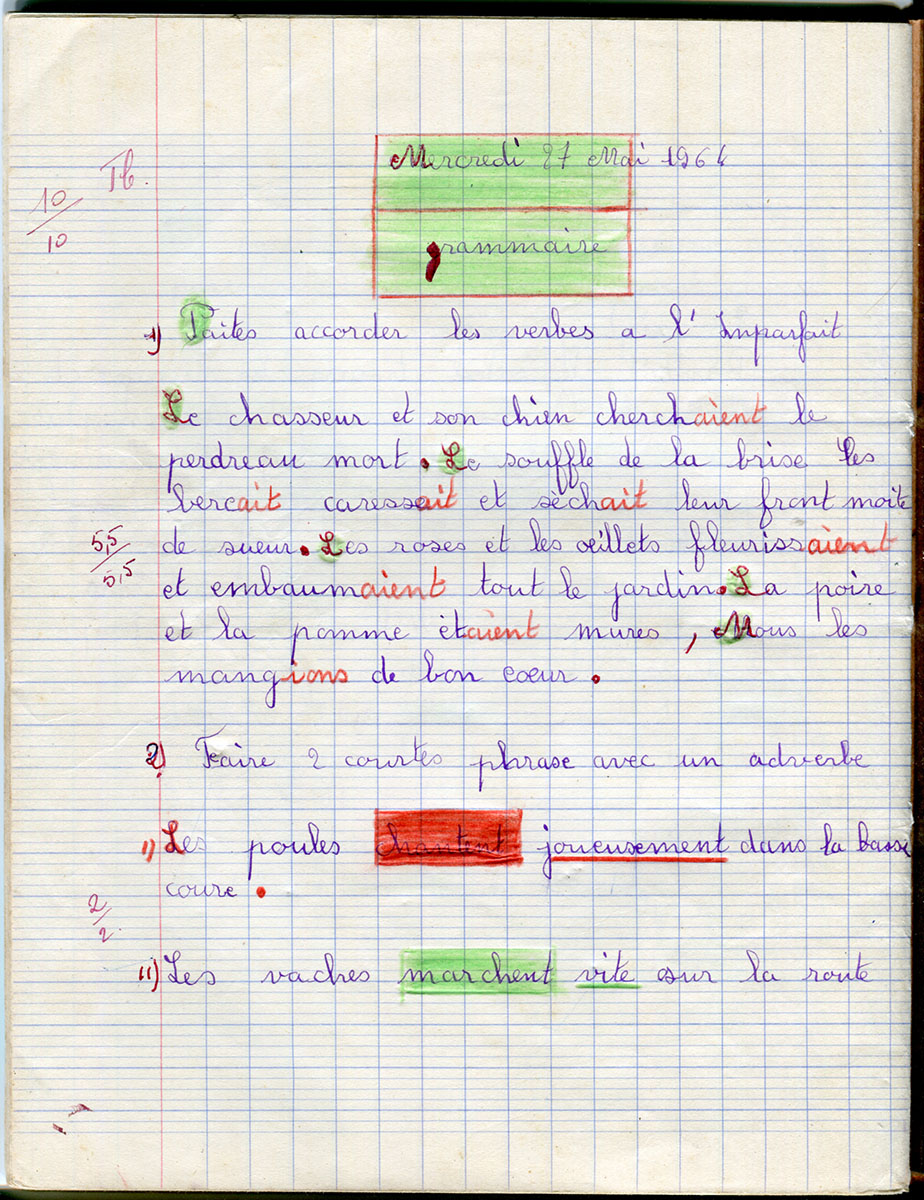 Mercredi 27 Mai 1964
10/10 Tb.
grammaire
1) Faites accorder les verbes a l' Imparfait
Le chasseur et son chien cherchaient le
perdreau mort. Le souffle de la brise les
bercait caressait et sèchait leur front moite
5,5/5,5
de sueur. Les roses et les œillets fleurissaient
et embaumaient tout le jardin. La poire
et la pomme ètaient mures, Nous les
mangions de bon coeur.
2) Faire 2 courtes phrase avec un adverbe
1) Les poules chantent joyeusement dans la basse
coure.
2/2
11) Les vaches marchent vite sur la route